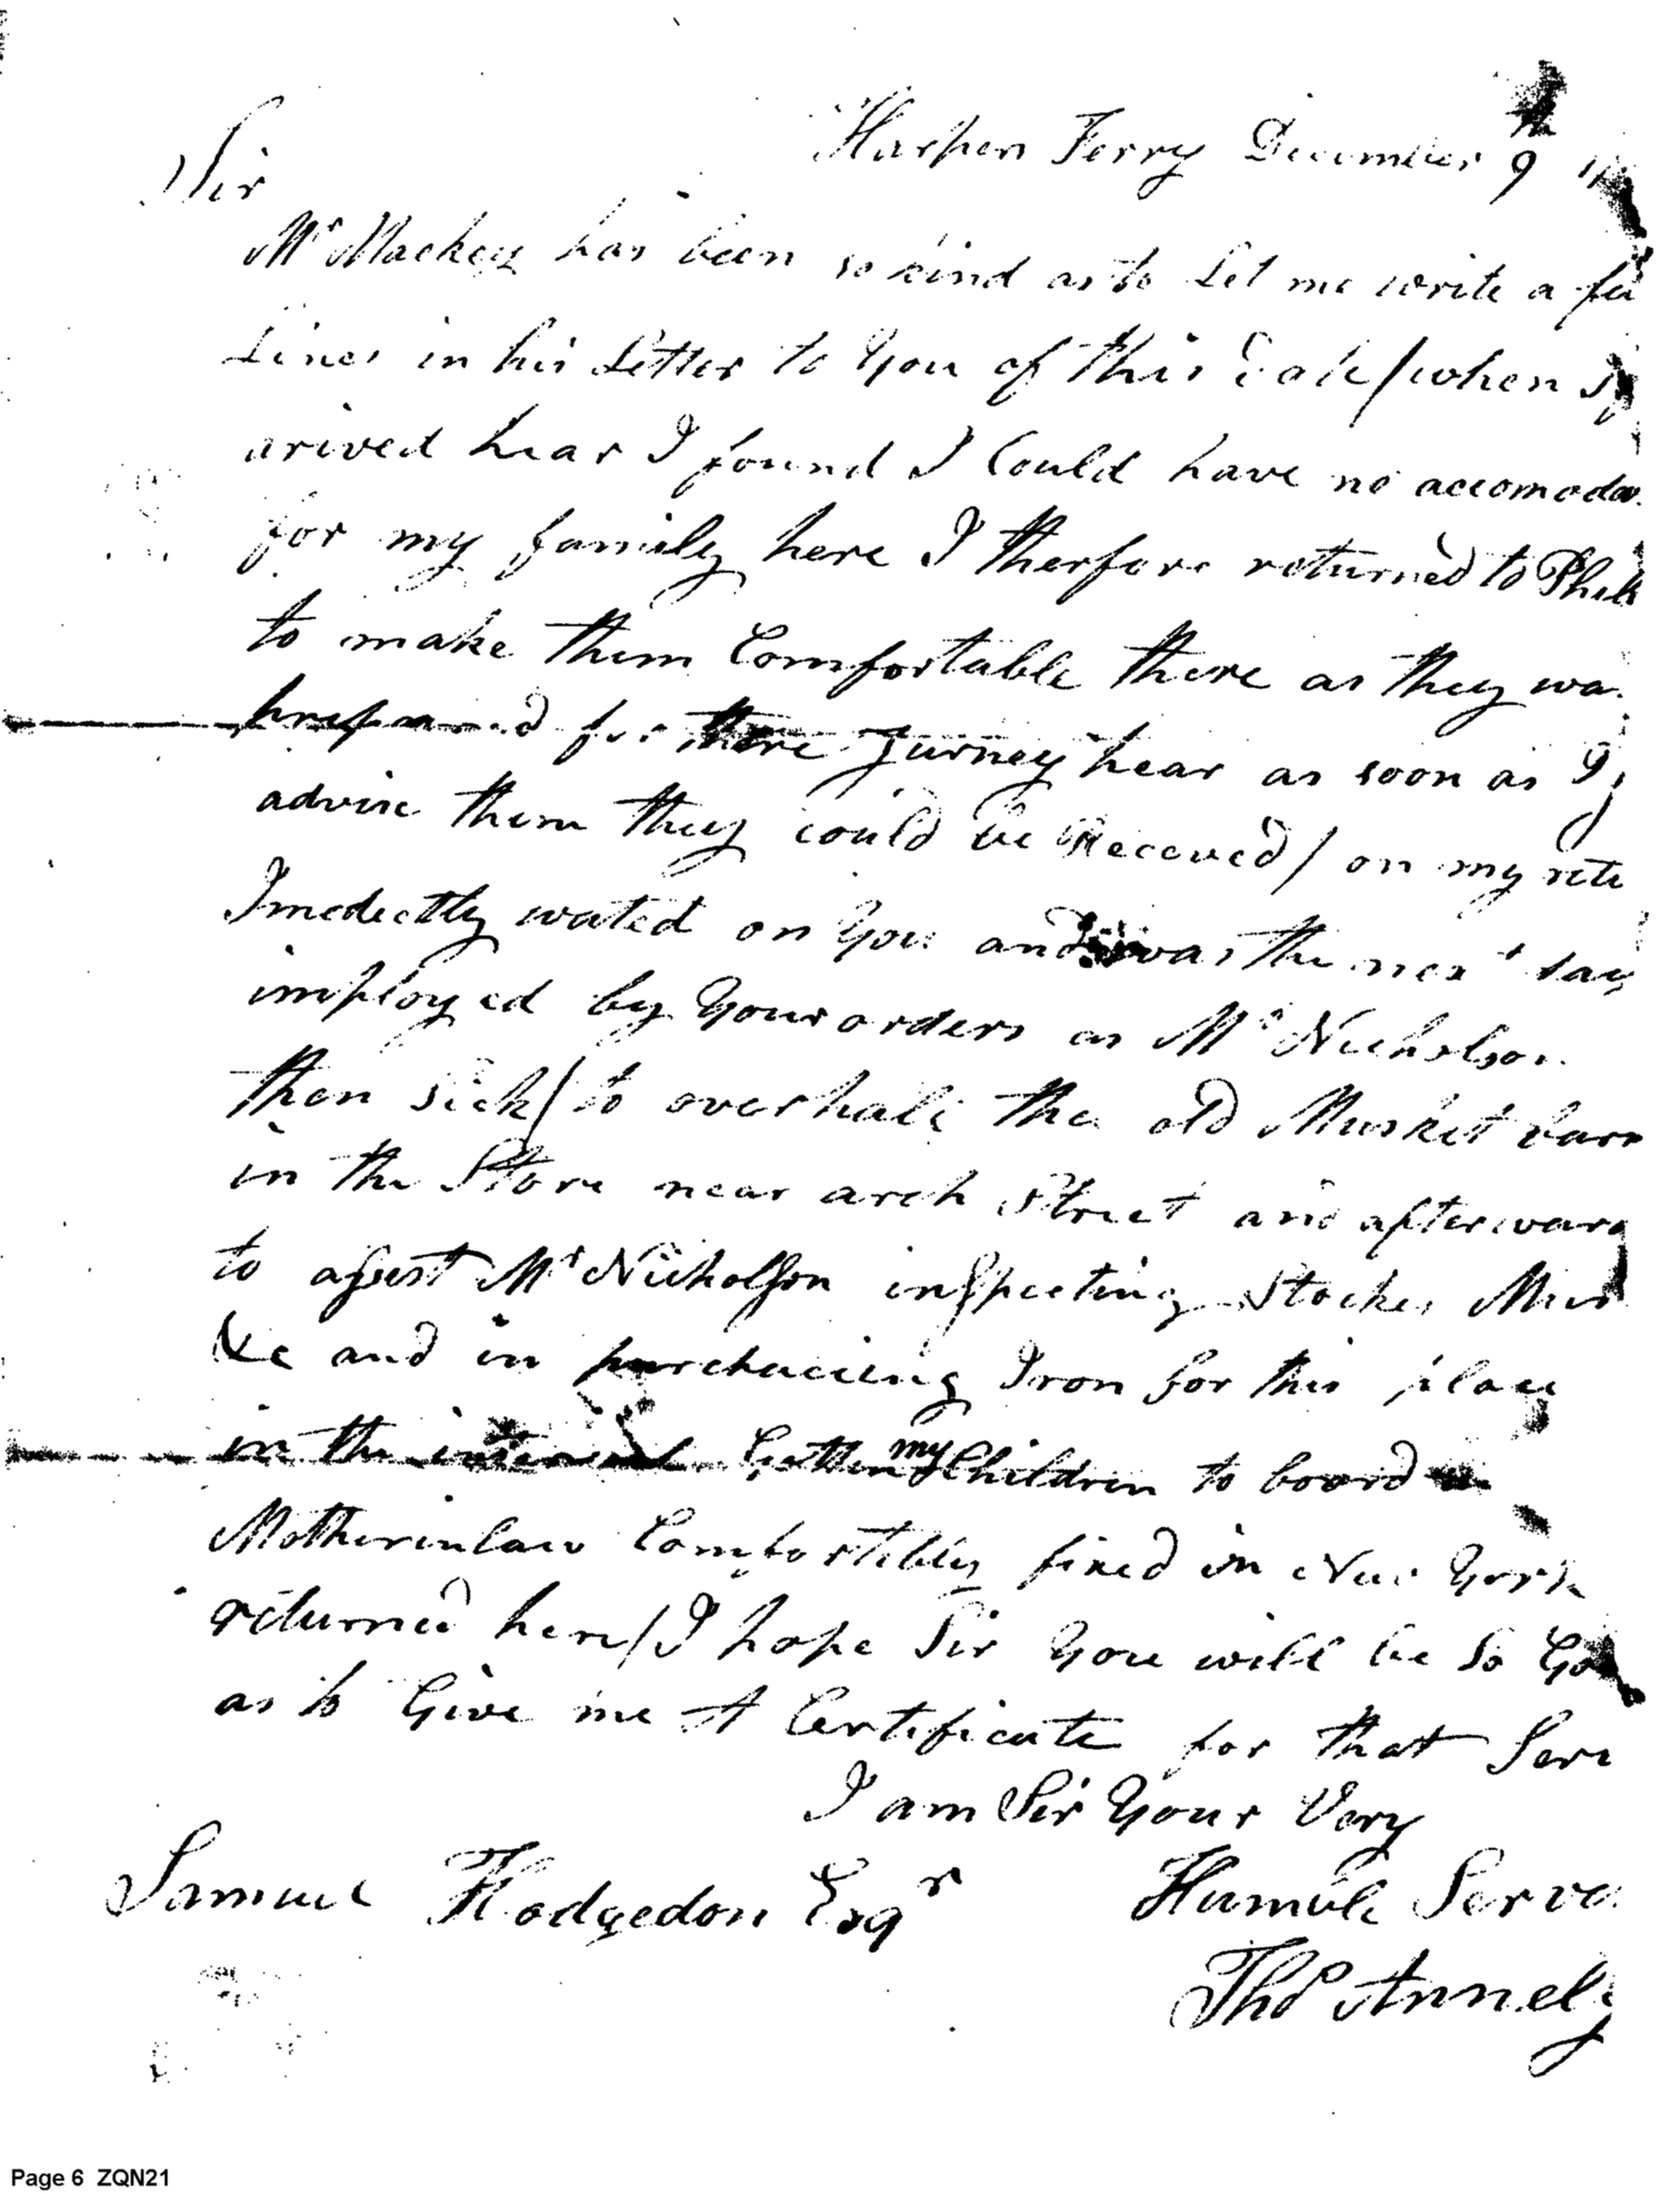 Harpers Ferry December 9
Sir
Mr Mackey has been so kind as to Let me write a
Lines in his Letter to You of this date / when I
arived hear I found I Could have no accomoda
for my family here I therfore returned to Phila
to make them Comfortable there as they wa
prepared for there Jurney hear as soon as I
advise them they could be Receved / on my retu
Imedectly wated on You and was the next day
imployed by Your orders as Mr Nicholson
then sick / to overhale the old Musket barr
in the Store near arch Street and afterward
to asist Mr Nicholson inspecting Stockes Mus
&c and in purchaceing Iron for this place
in the interval Gotten my Children to board
Motherinlaw Comfortibly fixed in New York
returned here / I hope Sir You will be So Go
as to Give me A Certificate for that Serv
I am Sir Your Very
Samuel Hodgedon Esqr Humble Serva
Thos Annely
Page 6 ZQN21